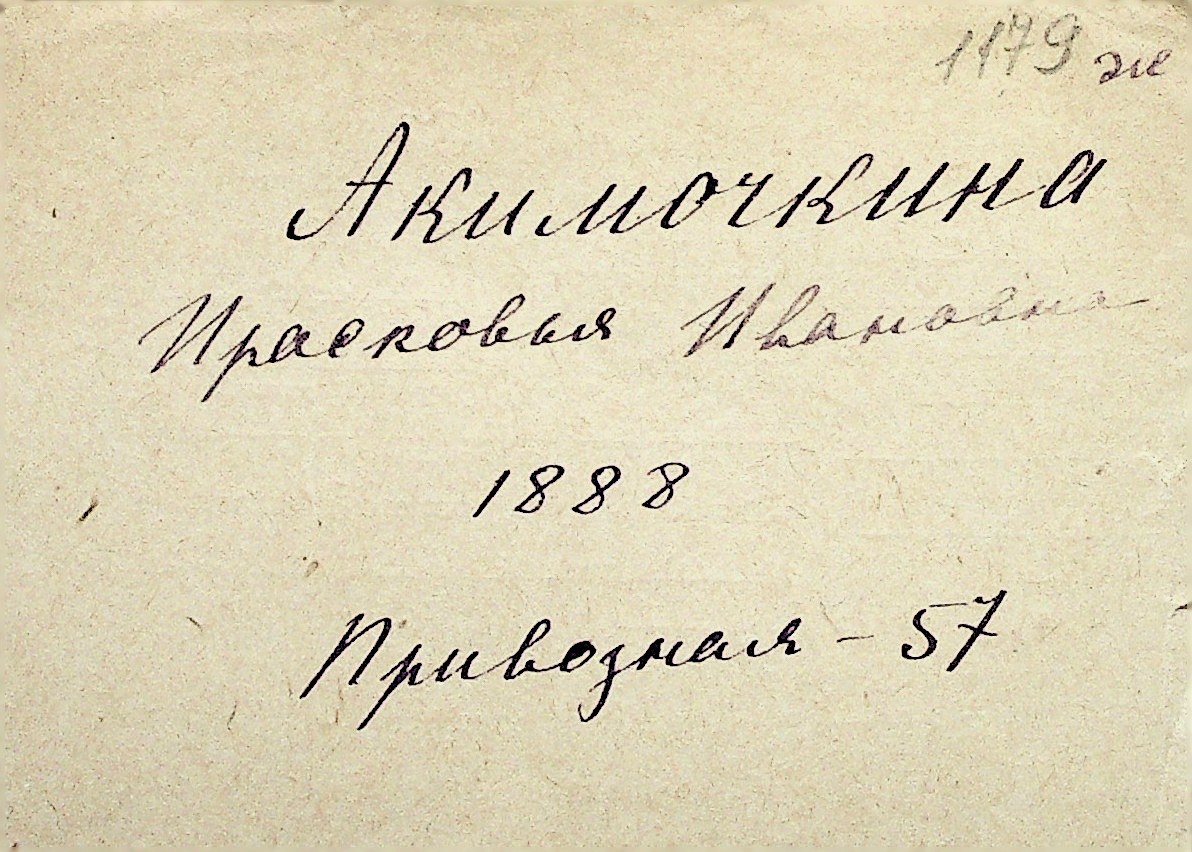 1179 ж
Акимочкина
Прасковья Ивановна
1888
Привозная - 57